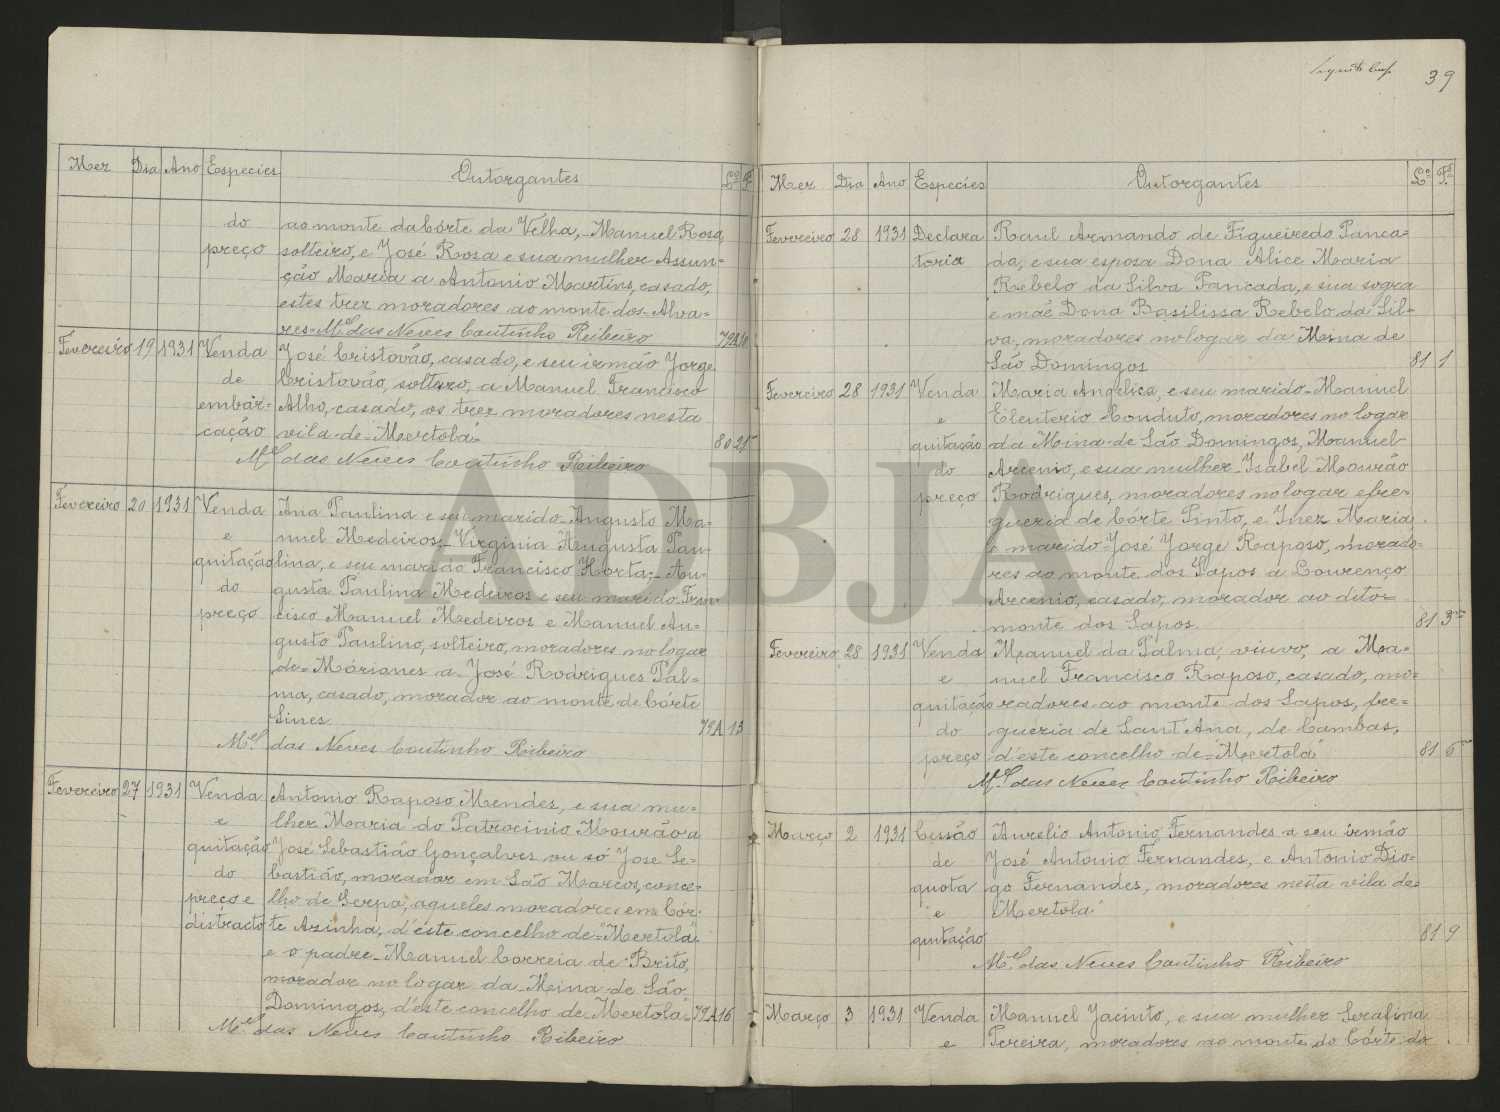 Mez Dia Ano Especies Outorgantes L.º F.
do ao monte da Córte da Velha, Manuel Rosa,
preço solteiro, e José Rosa e sua mulher Assun-
ção Maria a Antonio Martins, casado,
estes trez moradores ao monte dos Alva-
res = M.el das Neves Coutinho Ribeiro 79A
Fevereiro 19 1931 Venda José Cristovão, casado, e seu irmão Jorge
de Cristovão, solteiro, a Manuel Francisco
embar- Alho, casado, os trez moradores nesta
cação vila de Mertola 80
M.el das Neves Coutinho Ribeiro
Fevereiro 20 1931 Venda Ana Paulina e seu marido Augusto Ma-
e nuel Medeiros; Virginia Augusta Pau-
quitação lina, e seu marido Francisco Horta; Au-
do gusta Paulina Medeiros e seu marido Fran-
preço cisco Manuel Medeiros e Manuel Au-
gusto Paulino, solteiro, moradores no logar
de Mórianes a José Rodrigues Pal-
ma, casado, morador ao monte de Córte
Sines 79A 13
M.el das Neves Coutinho Ribeiro
Fevereiro 27 1931 Venda Antonio Raposo Mendes, e sua mu-
e lher Maria do Patrocinio Mourão a
quitação José Sebastião Gonçalves ou só José Se-
do bastião, morador em São Marcos, conce-
preço e lho de Serpa, aqueles moradores em Cór-
distracto te Azinha, d'este concelho de "Mertola",
e o padre Manuel Correia de Brito,
morador no logar da Mina de São
Domingos, d'este concelho de Mertola 79A 16
M.el das Neves Coutinho Ribeiro
39
Mez Dia Ano Especies Outorgantes L.º F.º
Fevereiro 28 1931 Declara Raul Armando de Figueiredo Panca-
toria da, e sua esposa Dona Alice Maria
Rebelo da Silva Pancada, e sua sogra
e mãe Dona Basilissa Rebelo da Sil-
va, moradores no logar da Mina de
São Domingos 81 1
Fevereiro 28 1931 Venda Maria Angelica, e seu marido Manuel
e Eleuterio Conduto, moradores no logar
quitação da Mina de São Domingos, Manuel
do Arcenio, e sua mulher Isabel Mourão
preço Rodrigues, moradores no logar e fre-
gueria de Córte Pinto, e Ynez Maria,
e marido José Jorge Raposo, morado-
res ao monte dos Sapos a Lourenço
Arcenio, casado, morador ao dito
monte dos Sapos. 81 3
Fevereiro 28 1931 Venda Manuel da Palma, viuvo, a Ma-
e nuel Francisco Raposo, casado, mo-
quitação radores ao monte dos Sapos, fre-
do gueria de Sant'Ana, de Cambas,
preço d'este concelho de "Mertola" 81
M.el das Neves Coutinho Ribeiro
Março 2 1931 Cessão Aurelio Antonio Fernandes a seu irmão
de José Antonio Fernandes, e Antonio Dio-
quota go Fernandes, moradores nesta vila de
e Mertola
quitação 81 9
M.el das Neves Coutinho Ribeiro
Março 3 1931 Venda Manuel Jacinto, e sua mulher Serafina
e Pereira, moradores ao monte do Córte do
ADBJA